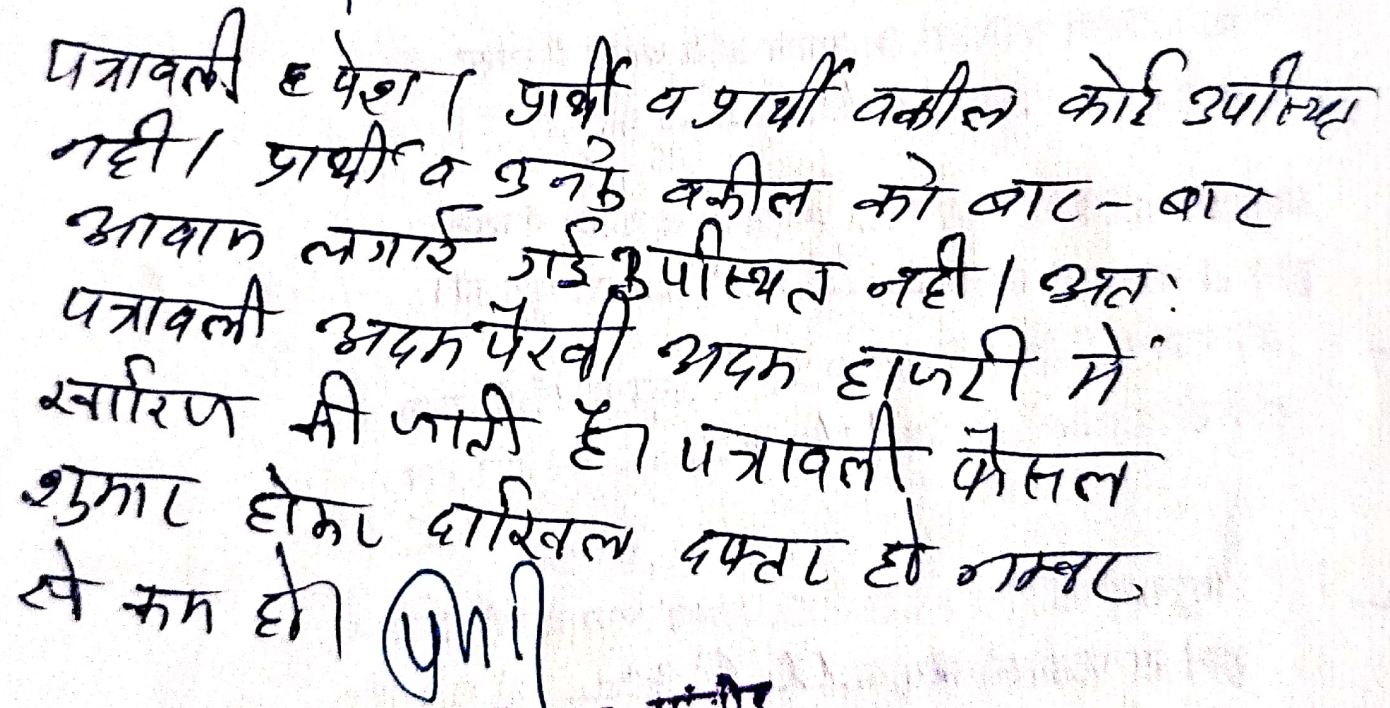 पत्रावली पेश। प्रार्थी व प्रार्थी वकील कोई उपस्थित
नही। प्रार्थी व उनके वकील को बार-बार
आवाज लगाई गई उपस्थित नही। अतः
पत्रावली अदम पैरवी अदम हाजरी में
खारिज की जाती है। पत्रावली फैसल
शुमार होकर दाखिल दफ्तर हो नम्बर
से कम हो।